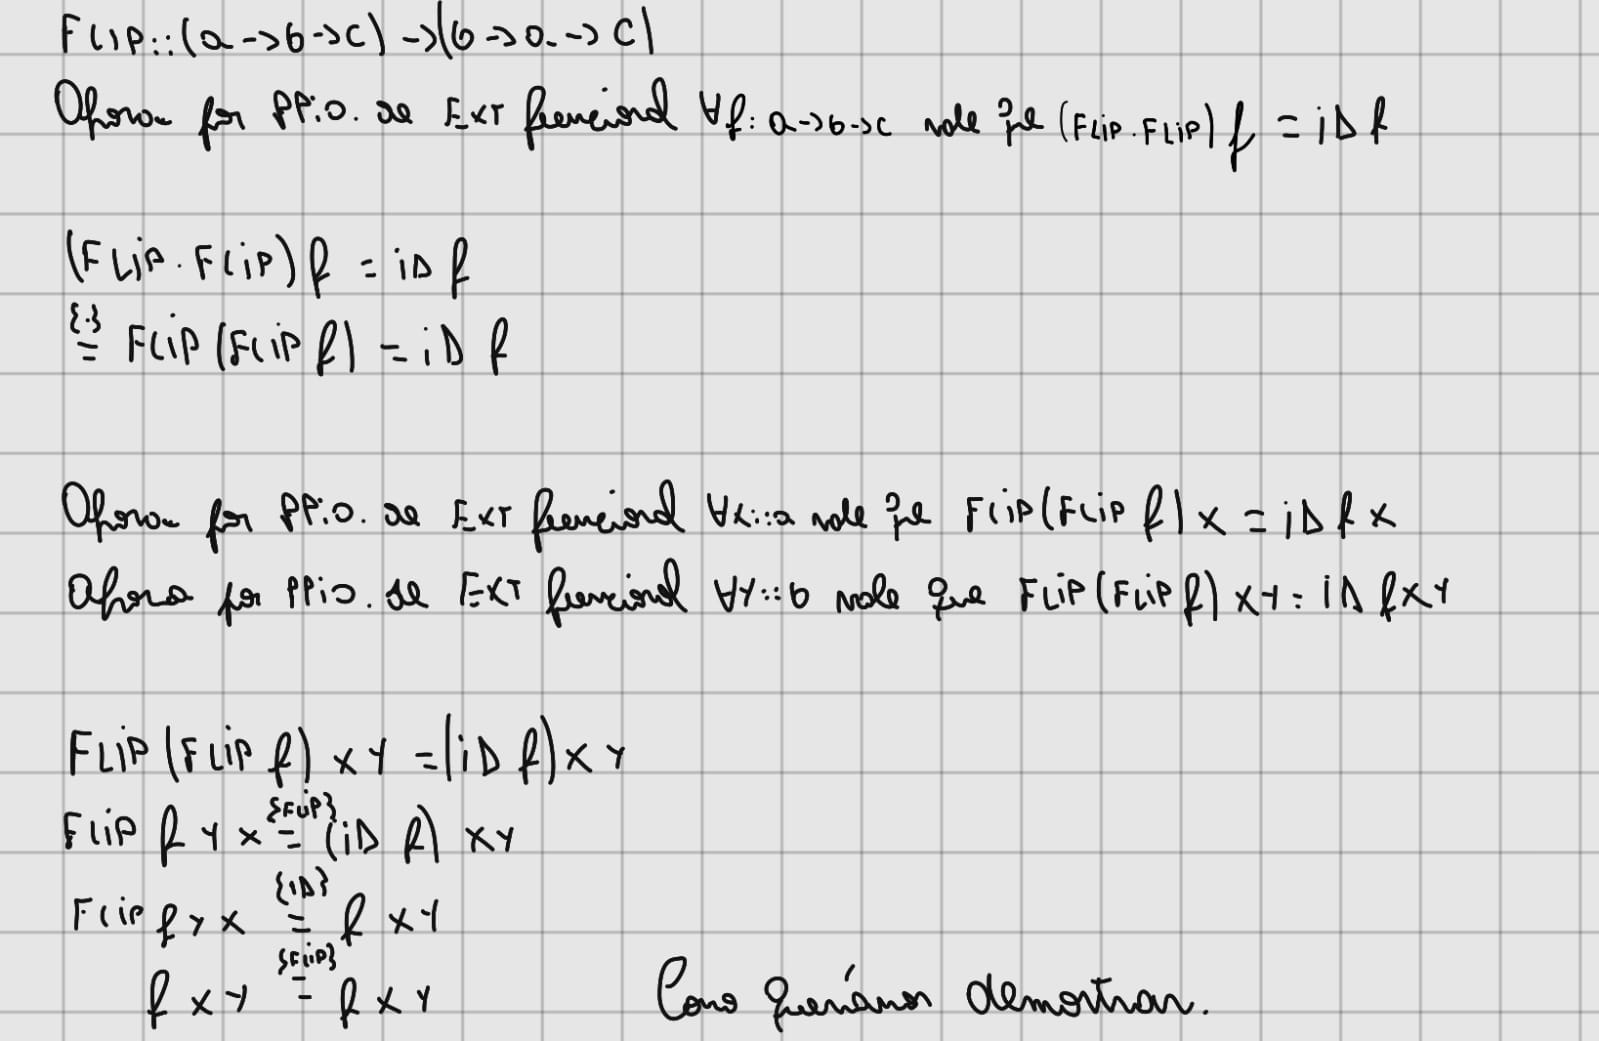 FLIP::(a->b->c)->(b->a->c)
Ahora por PPiO. de EXT funcional ∀f: a->b->c vale que (FLIP.FLIP) f = iD f
(FLiP.FLiP) f = iD f
{.}
= FLiP (FLiP f) = iD f
Ahora por PPiO. de EXT funcional ∀x::a vale que FLiP(FLiP f) x = iD f x
Ahora por PPiO. de EXT funcional ∀Y::b vale que FLiP(FLiP f) x Y = iD f x Y
FLiP (FLiP f) x Y = (iD f) x Y
{FLiP}
FLiP f Y x = (iD f) x Y
{iD}
FLiP f Y x = f x Y
{FLiP}
f x Y = f x Y Como queríamos demostrar.